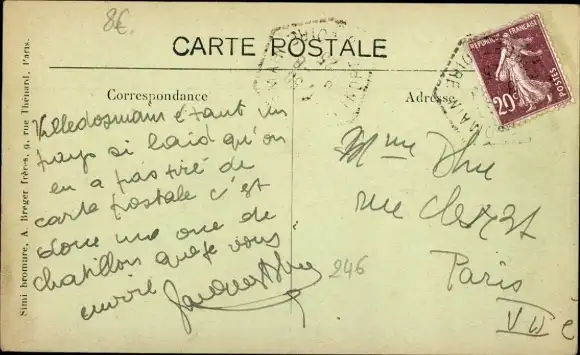 8€
CARTE POSTALE
Correspondance
Adresse
Villedomain étant un
pays si laid qu'on
en a pas tiré de
carte postale c'est
donc une vue de
Chatillon que je vous
envoie
246
Mme
rue Cler
Paris
VII e
REPUBLIQUE FRANÇAISE
POSTES
20c
Simi bromure, A. Breger frères, 9, rue Thénard, Paris.